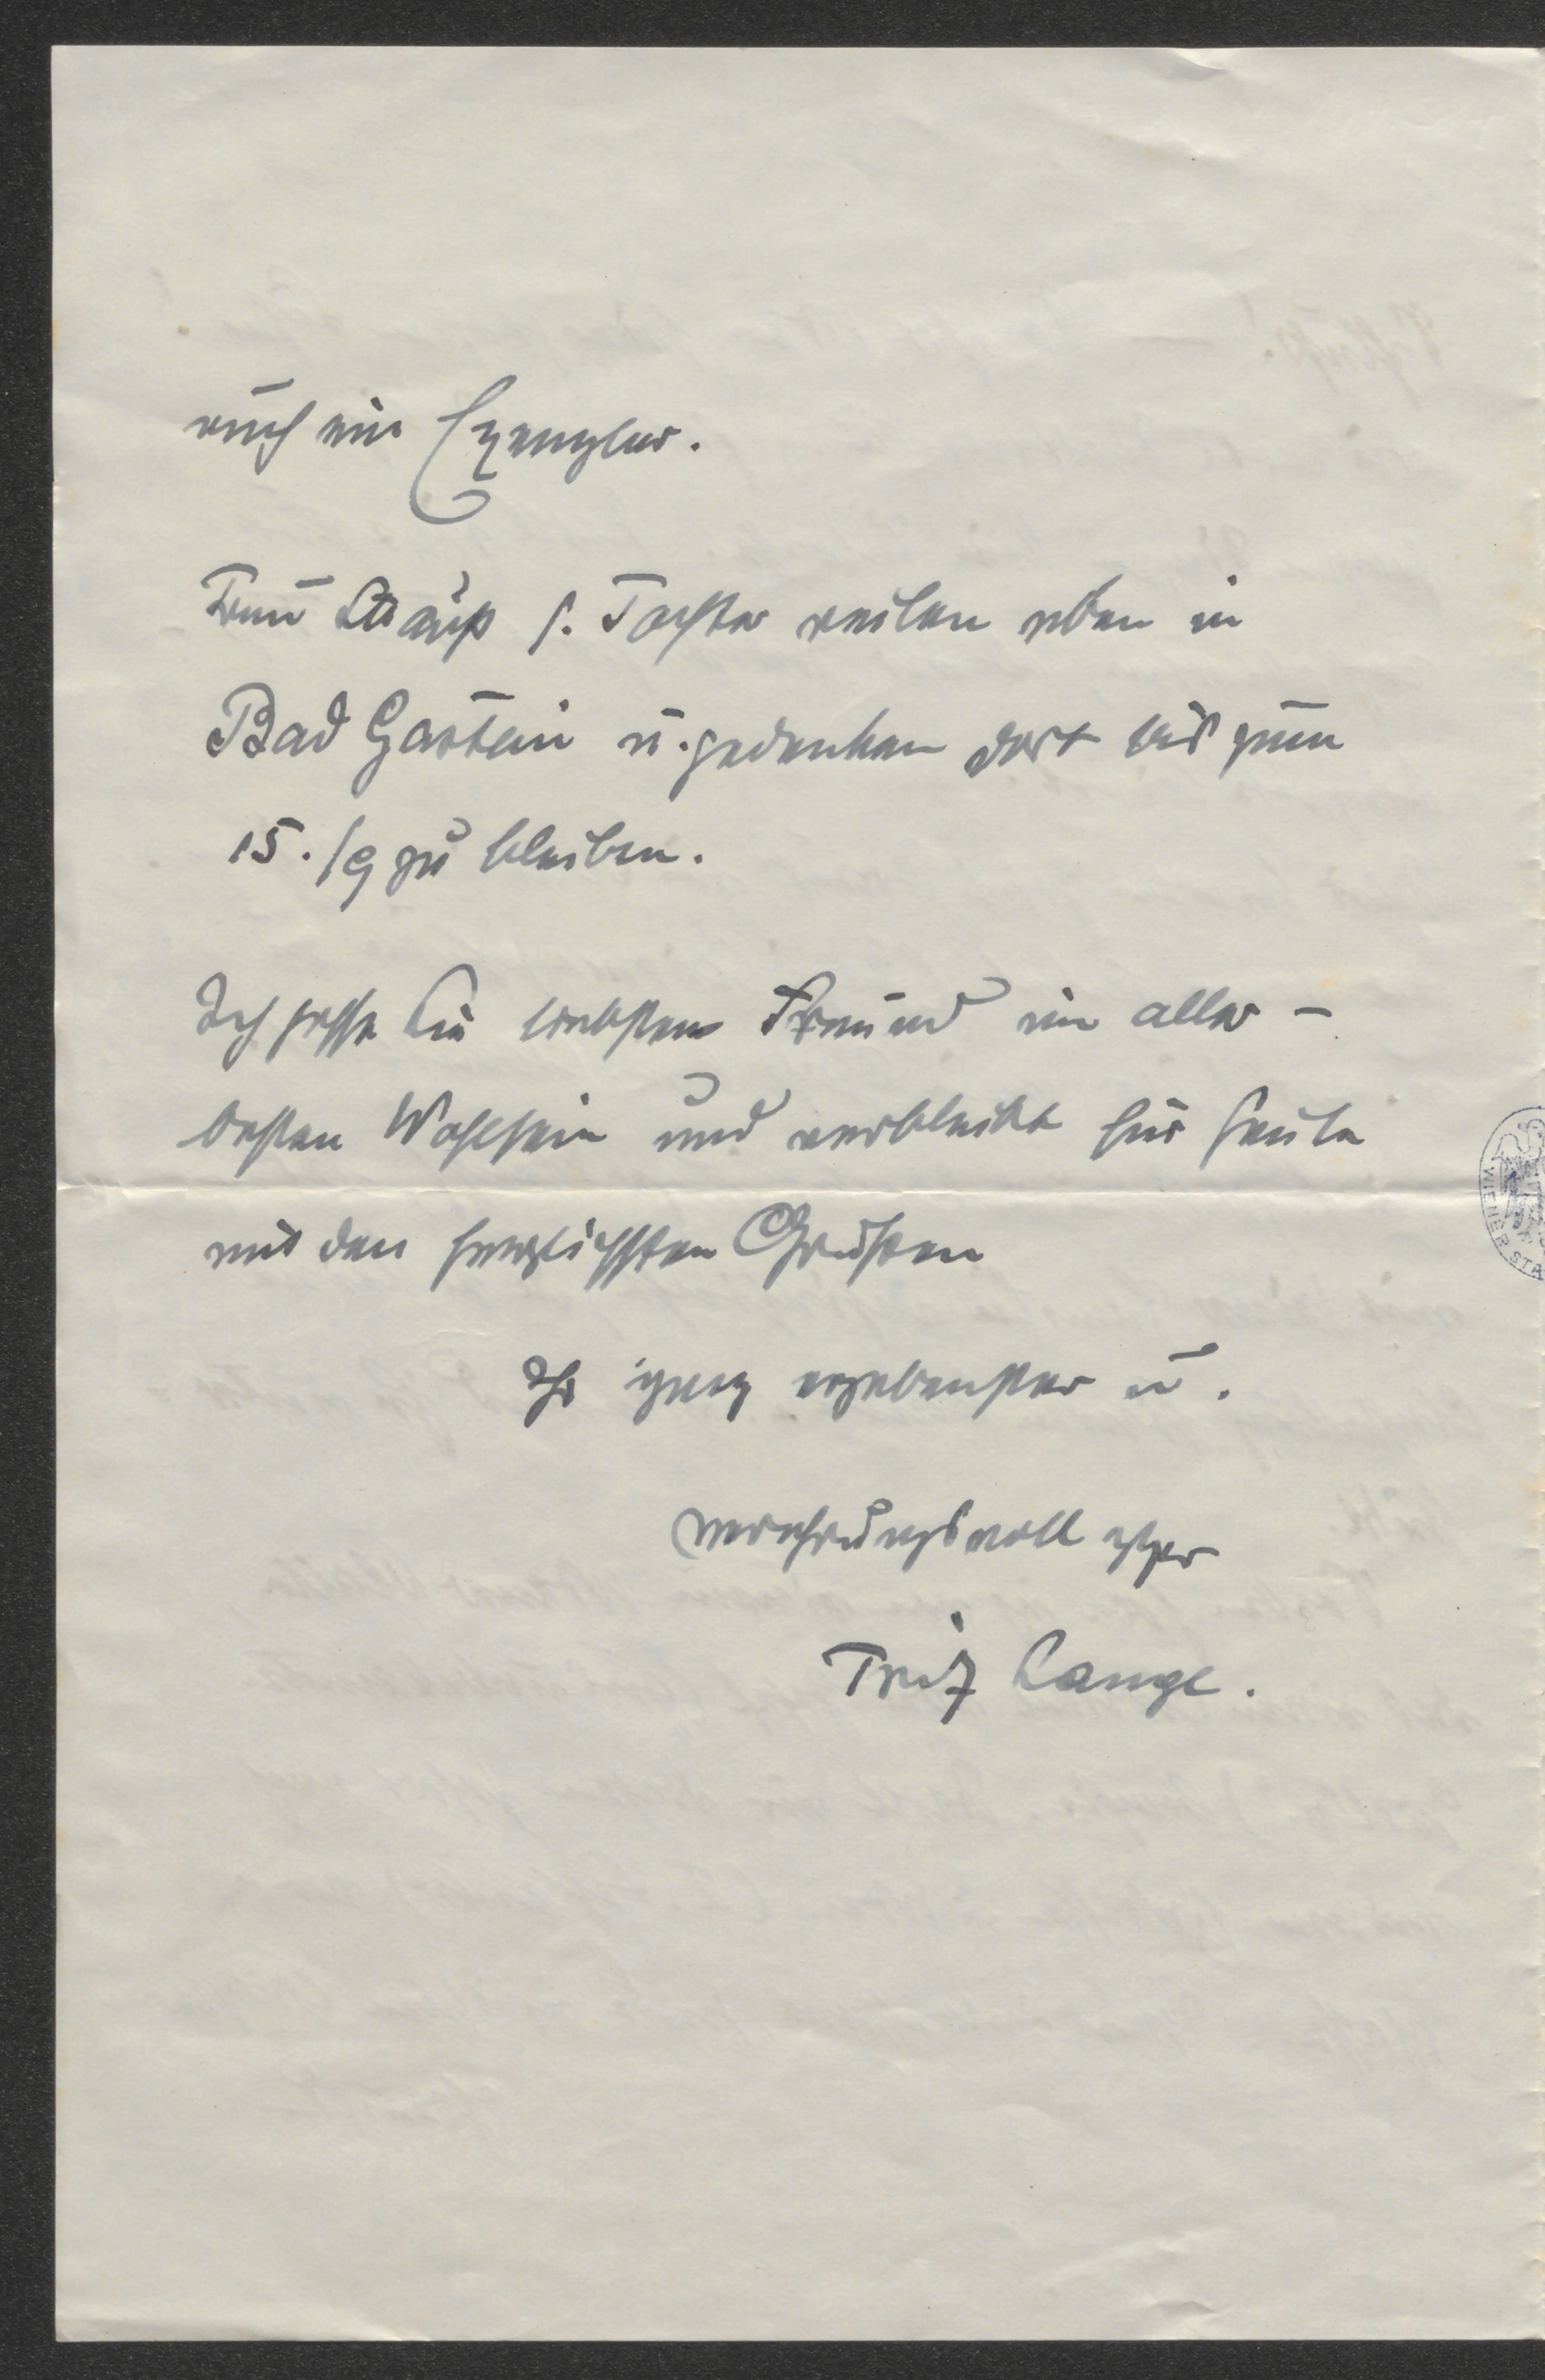 auch ein Exemplar.
Frau Strauß s. Tochter weilen eben in
Bad Gastein u. gedenken dort bis zum
15./9 zu bleiben.
Ich hoffe Sie liebster Freund im aller-
besten Wohlsein und verbleibe für heute
mit den herzlichsten Grüßen
Ihr ganz ergebenster u.
verehrungsvoll
Fritz Lange.
WIENER STA